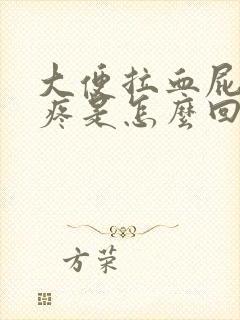 大便拉血屁
疼是怎麼回
方荣